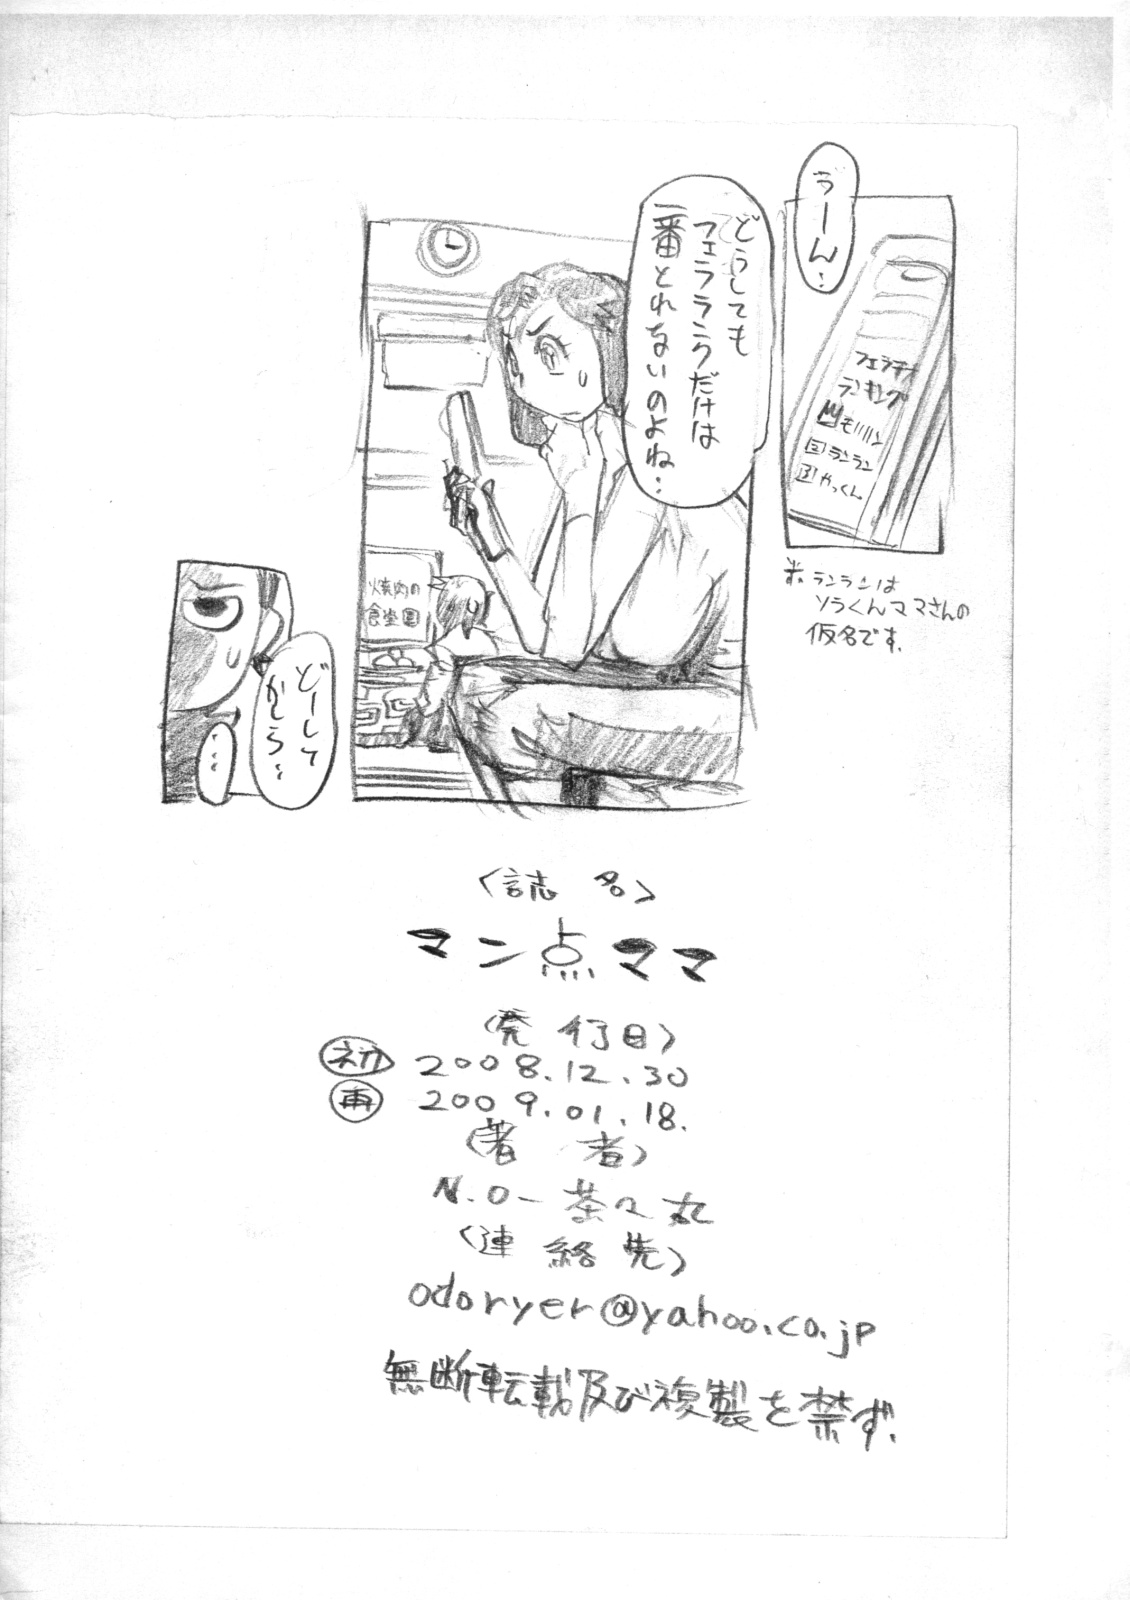 うーん…
フェラチオ
ランキング
1 モリリン
2 ランラン
3 やっくん
※ランランは
ソラくんママさんの
仮名です.
どうしても
フェラランクだけは
一番とれないのよね…
焼肉の
食楽園
どーして
かしら…
…
〈誌 名〉
マン点ママ
〈発 行日〉
初 2008.12.30
再 2009.01.18.
〈著 者〉
N.O-茶々丸
〈連 絡先〉
odoryer@yahoo.co.jp
無断転載及び複製を禁ず.